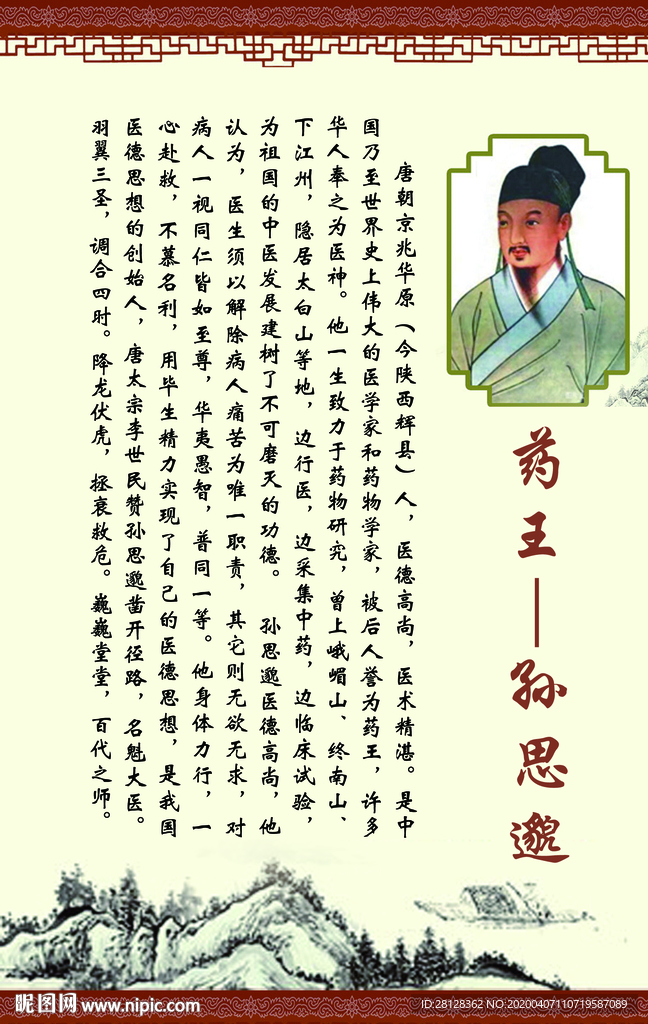 药王——孙思邈
唐朝京兆华原（今陕西辉县）人，医德高尚，医术精湛。是中
国乃至世界史上伟大的医学家和药物学家，被后人誉为药王，许多
华人奉之为医神。他一生致力于药物研究，曾上峨嵋山、终南山、
下江州，隐居太白山等地，边行医，边采集中药，边临床试验，
为祖国的中医发展建树了不可磨灭的功德。 孙思邈医德高尚，他
认为，医生须以解除病人痛苦为唯一职责，其它则无欲无求，对
病人一视同仁皆如至尊，华夷愚智，普同一等。他身体力行，一
心赴救，不慕名利，用毕生精力实现了自己的医德思想，是我国
医德思想的创始人，唐太宗李世民赞孙思邈凿开径路，名魁大医。
羽翼三圣，调合四时。降龙伏虎，拯衰救危。巍巍堂堂，百代之师。
昵图网 www.nipic.com
ID:28128362 NO.20200407110719587089